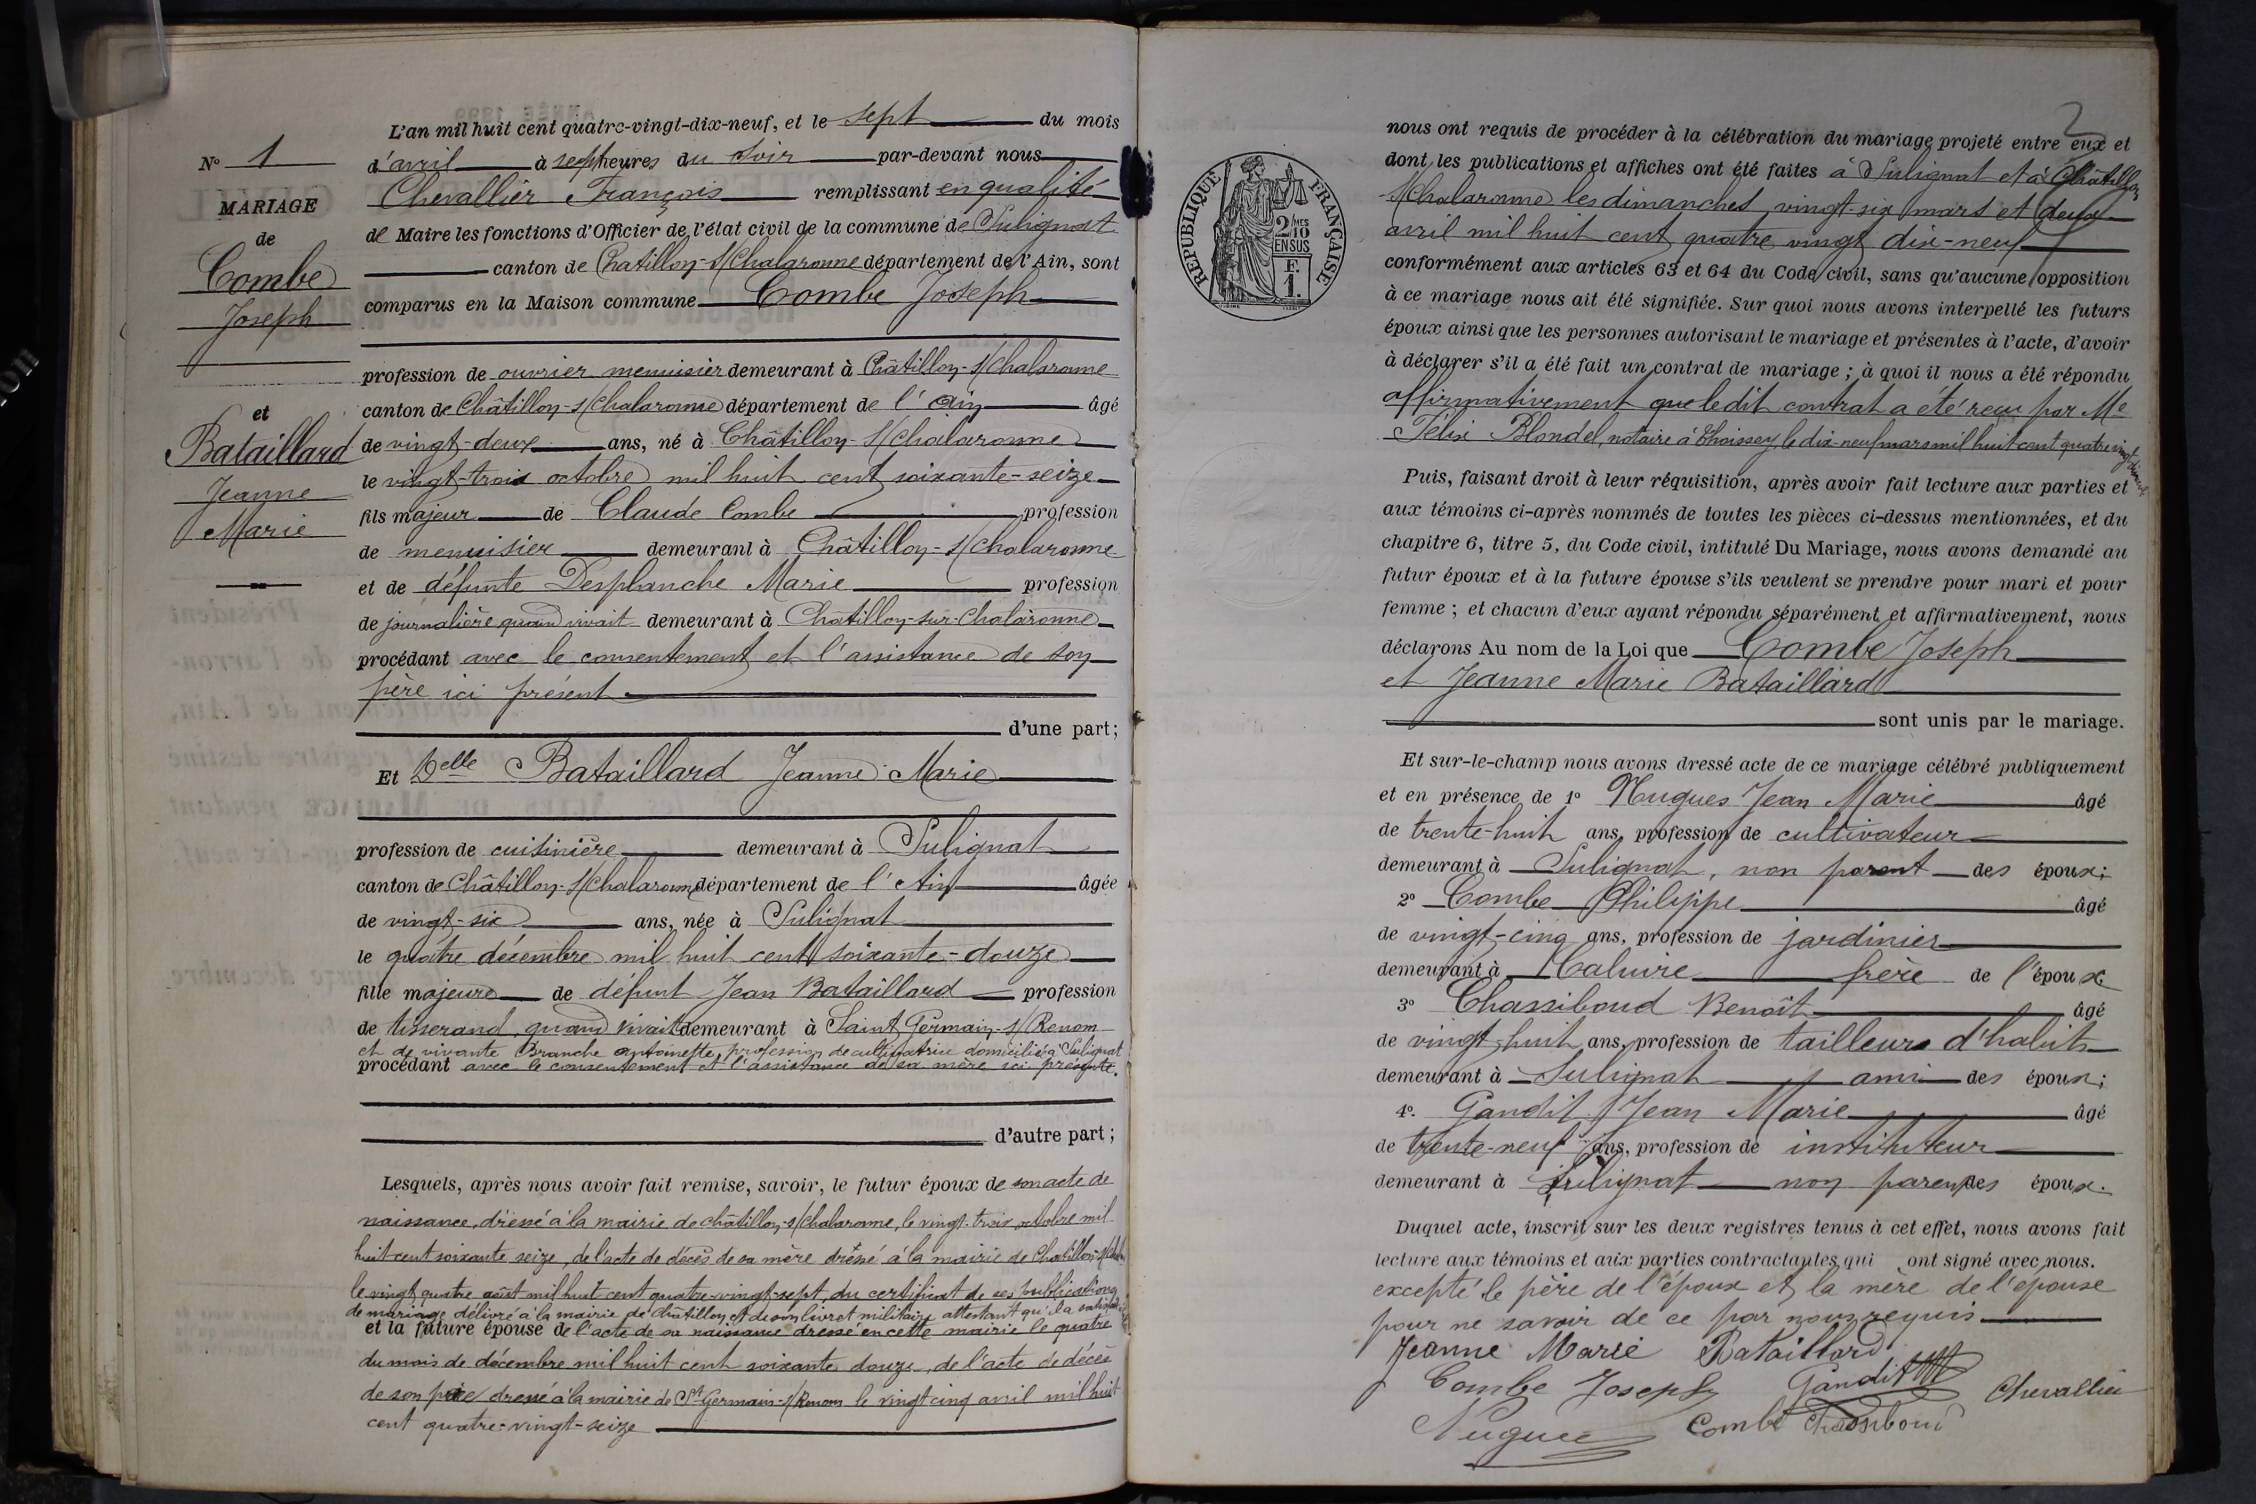 N° 1
MARIAGE
de
Combe
Joseph
et
Bataillard
Jeanne
Marie
L'an mil huit cent quatre-vingt-dix-neuf, et le sept du mois
d'avril à sept heures du soir par-devant nous
Chevallier François remplissant en qualité
de Maire les fonctions d'Officier de l'état civil de la commune de Sulignat
canton de Chatillon-s/Chalaronne département de l'Ain, sont
comparus en la Maison commune Combe Joseph
profession de ouvrier menuisier demeurant à Châtillon-s/Chalaronne
canton de Châtillon-s/Chalaronne département de l'Ain âgé
de vingt-deux ans, né à Châtillon-s/Chalaronne
le vingt-trois octobre mil huit cent soixante-seize
fils majeur de Claude Combe profession
de menuisier demeurant à Châtillon-s/Chalaronne
et de défunte Desplanche Marie profession
de journalière quand vivait demeurant à Châtillon-sur-Chalaronne
procédant avec le consentement et l'assistance de son
père ici présent
d'une part;
Et Delle Bataillard Jeanne Marie
profession de cuisinière demeurant à Sulignat
canton de Châtillon-s/Chalaronne département de l'Ain âgée
de vingt-six ans, née à Sulignat
le quatre décembre mil huit cent soixante-douze
fille majeure de défunt Jean Bataillard profession
de tisserand, quand vivait demeurant à Saint Germain-s/Renom
et de vivante Branche Antoinette, profession de cultivatrice domiciliée à Sulignat
procédant avec le consentement et l'assistance de sa mère ici présente.
d'autre part;
Lesquels, après nous avoir fait remise, savoir, le futur époux de son acte de
naissance, dressé à la mairie de Châtillon-s/Chalaronne, le vingt-trois octobre mil
huit cent soixante seize, de l'acte de décès de sa mère dressé à la mairie de Chatillon-s/Chal
le vingt quatre août mil huit cent quatre-vingt-sept, du certificat de ses publications
de mariage délivré à la mairie de Châtillon et de son livret militaire attestant qu'il a
et la future épouse de l'acte de sa naissance dressé en cette mairie le quatre
du mois de décembre mil huit cent soixante douze, de l'acte de décès
de son père dressé à la mairie de St Germain-s/Renom le vingt cinq avril mil huit
cent quatre-vingt-seize
2
RÉPUBLIQUE FRANÇAISE
2 MES
/10
EN SUS
F.
1.
nous ont requis de procéder à la célébration du mariage projeté entre eux et
dont les publications et affiches ont été faites à Sulignat et à Châtillon
s/Chalaronne les dimanches vingt-six mars et deux
avril mil huit cent quatre vingt dix-neuf
conformément aux articles 63 et 64 du Code civil, sans qu'aucune opposition
à ce mariage nous ait été signifiée. Sur quoi nous avons interpellé les futurs
époux ainsi que les personnes autorisant le mariage et présentes à l'acte, d'avoir
à déclarer s'il a été fait un contrat de mariage; à quoi il nous a été répondu
affirmativement que le dit contrat a été reçu par Me
Félix Blondel, notaire à Thoissey le dix-neuf mars mil huit cent quatre vingt dix neuf
Puis, faisant droit à leur réquisition, après avoir fait lecture aux parties et
aux témoins ci-après nommés de toutes les pièces ci-dessus mentionnées, et du
chapitre 6, titre 5, du Code civil, intitulé Du Mariage, nous avons demandé au
futur époux et à la future épouse s'ils veulent se prendre pour mari et pour
femme; et chacun d'eux ayant répondu séparément et affirmativement, nous
déclarons Au nom de la Loi que Combe Joseph
et Jeanne Marie Bataillard
sont unis par le mariage.
Et sur-le-champ nous avons dressé acte de ce mariage célébré publiquement
et en présence de 1° Nugues Jean Marie âgé
de trente-huit ans, profession de cultivateur
demeurant à Sulignat, non parent des époux;
2° Combe Philippe âgé
de vingt-cinq ans, profession de jardinier
demeurant à Caluire frère de l'époux
3° Chassiboud Benoît âgé
de vingt-huit ans, profession de tailleurs d'habits
demeurant à Sulignat ami des époux;
4°. Gandit Jean Marie âgé
de trente-neuf ans, profession de instituteur
demeurant à Sulignat non parent des époux.
Duquel acte, inscrit sur les deux registres tenus à cet effet, nous avons fait
lecture aux témoins et aux parties contractantes qui ont signé avec nous.
excepté le père de l'époux et la mère de l'épouse
pour ne savoir de ce par nous requis
Jeanne Marie Bataillard
Combe Joseph Gandit Chevallier
Nugues Combe Chassiboud